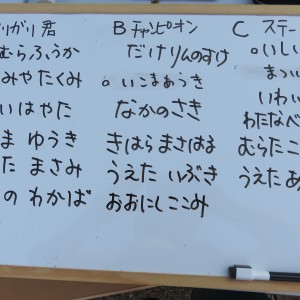 りがり君
むらふうか
みやたくみ
いはやた
ま ゆうき
た まさみ
の わかば
B チャンピオン
だけりんのすけ
○ いこまあうき
なかのさき
きはら まさはる
うえた いぶき
おおにしここみ
C ステー
○いしい
まつい
いわい
わたなべ
むらたこ
うえた あ